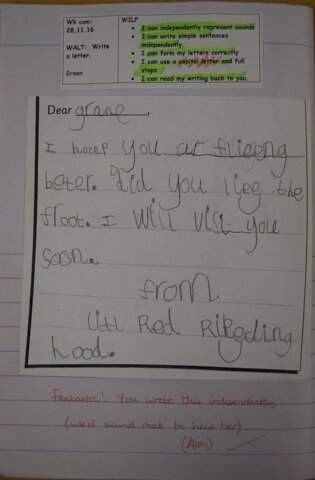 Wk com:
28.11.16
WALT: Write
a letter.
Green
WILF
• I can independently represent sounds
• I can write simple sentences
independently.
• I can form my letters correctly
• I can use a capital letter and full
stops
• I can read my writing back to you.
Dear grane,
I hoop you ar flieeng
beter. Did you liee the
floot. I will visi you
soon.
from
Littl Red Rikeding
hood.
Fantastic! You wrote this independently
(used sound mat to help her)